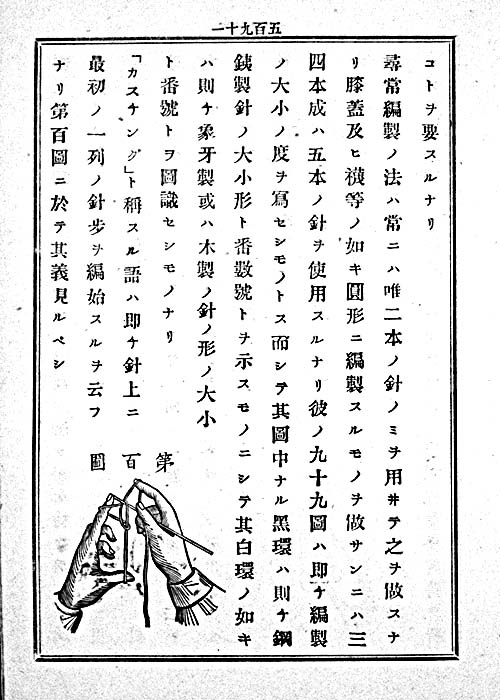 五百九十一
コトヲ要スルナリ
尋常編製ノ法ハ常ニハ唯二本ノ針ノミヲ用井テ之ヲ做スナ
リ膝蓋及ヒ襪等ノ如キ圓形ニ編製スルモノヲ做サンニハ三
四本成ハ五本ノ針ヲ使用スルナリ彼ノ九十九圖ハ即ケ編製
ノ大小ノ度ヲ寫セシモノトス而シテ其圖中ナル黑環ハ則ケ鋼
鐵製針ノ大小形ト番數號トヲ示スモノニシテ其白環ノ如キ
ハ則ケ象牙製或ハ木製ノ針ノ形ノ大小
ト番號トヲ圖識セシモノナリ
「カスチング」ト稱スル語ハ即ケ針上ニ
最初ノ一列ノ針步ヲ編始スルヲ云フ
ナリ第百圖ニ於テ其義見ルベシ
第百圖